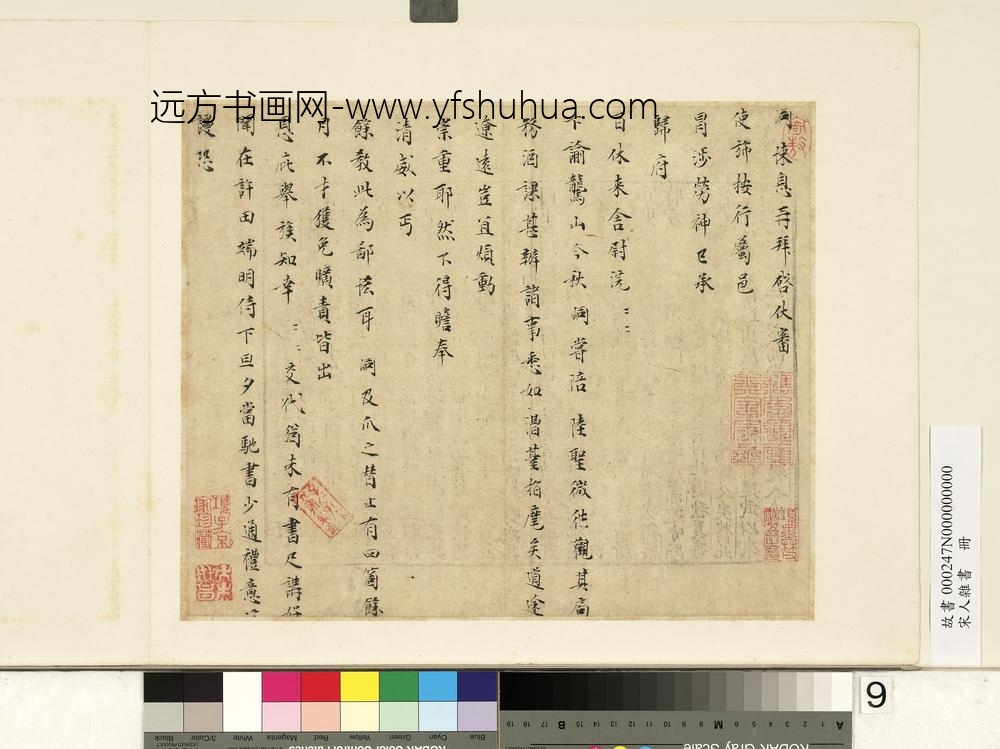 远方书画网-www.yfshuhua.com
悚息再拜啓伏審
使旆按行屬邑
冒涉勞神已承
歸府
日休来舍尉浣
下諭鷲山今秋 嘗陪 陸聖微往觀其
務酒課甚辦諸事悉如 臺指麾矣道途
遼遠豈宜煩動
崇重耶然不得瞻奉
清威以丐
餘教此為鄙 耳 及爪之替止有四箇餘
月不才獲免曠責皆出
恩庇舉族知幸 交代翁未有書尺講
聞在許田端明侍下旦夕當馳書少通禮意
謹恐
項子京
家珍藏
故書 000247N000000000
宋人雜書 冊
9
Blue Cyan Green Yellow Red Magenta White 3/Color Black
KODAK Gray Scale
A 1 2 3 4 5 6 M 8 9 10 11 12 13 14 15 B 17 18 19